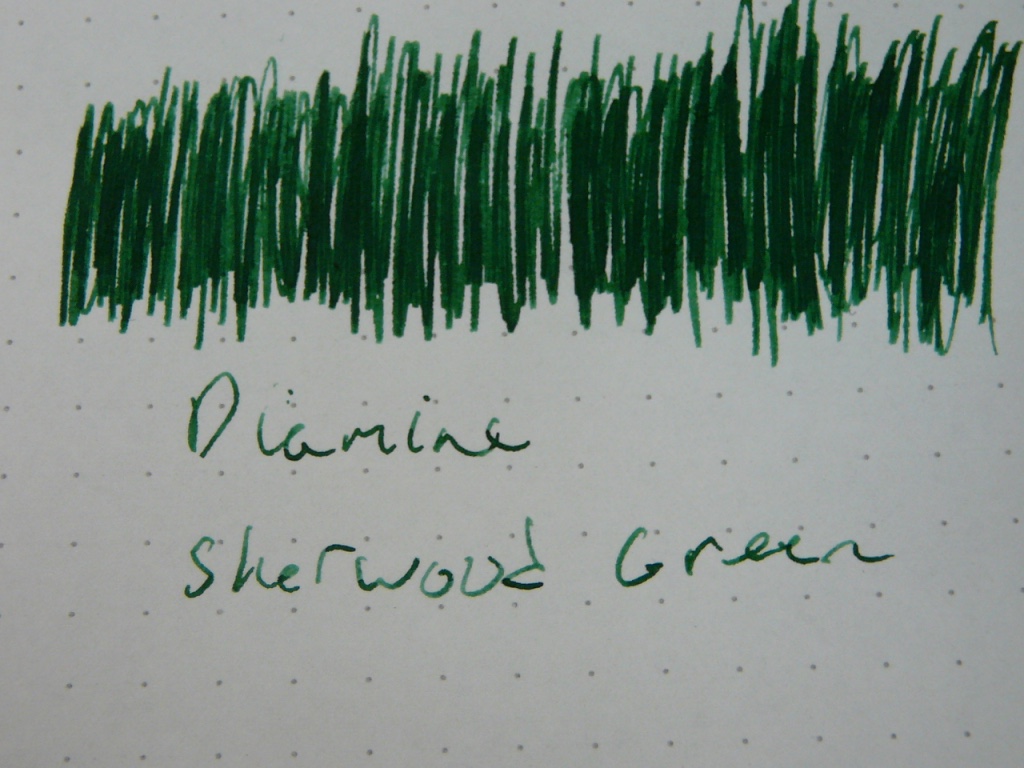 Diamine
Sherwood Green